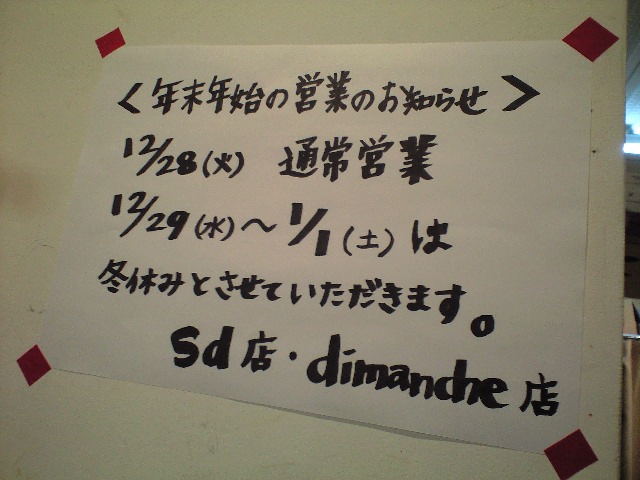 ＜年末年始の営業のお知らせ＞
12/28(火) 通常営業
12/29(水)～1/1(土)は
冬休みとさせていただきます。
sd店・dimanche店